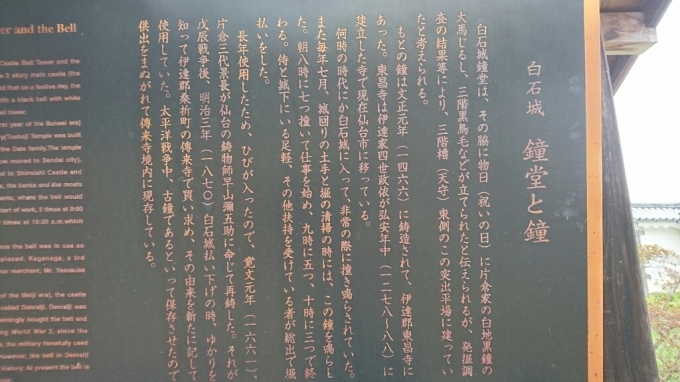 白石城 鐘堂と鐘
白石城鐘堂は、その脇に物日（祝いの日）に片倉家の白地黒鐘の
大馬じるし、三階黒鳥毛などが立てられたと伝えられるが、発掘調
査の結果等により、三階櫓（天守）東側のこの突出平場に建ってい
たと考えられる。
もとの鐘は文正元年（一四六六）に鋳造されて、伊達郡東昌寺に
あった。東昌寺は伊達家四世政依が弘安年中（一二七八〜八八）に
建立した寺で現在仙台市に移っている。
何時の時代にか白石城に入って、非常の際に撞き鳴らされていた。
また毎年七月、城回りの土手と堀の清掃の時には、この鐘を鳴らし
た。朝八時に七つ撞いて仕事を始め、九時に五つ、十時に三つで終
わる。侍と城下にいる足軽、その他扶持を受けている者が総出で堀
払いをした。
長年使用したため、ひびが入ったので、寛文元年（一六六一）、
片倉三代景長が仙台の鋳物師早山彌五助に命じて再鋳した。それが
戊辰戦争後、明治三年（一八七〇）白石城払い下げの時、ゆかりを
知って伊達郡桑折町の傳来寺で買い求め、その由来を新たに記して
使用していた。太平洋戦争中、古鐘であるといって保存させたので
供出をまぬがれて傳来寺境内に現存している。
er and the Bell
Castle Bell Tower and the
3 story main castle (the
d that on a festive day, the
ith a black bell with white
ll tower.
al year of the Bunsei era)
Toshoji Temple was built
the Date family.The temple
ow moved to Sendai city).
d to Shiroishi Castle and
s, the banks and the moats
ents, where the bell would
tart of work, 5 times at 9:00
times at 10:00 a.m.which
nce the bell was in use so
placed. Kagenaga, a 3rd
on merchant, Mr. Yasosuke
of the Meiji era), the castle
called Denraiji. Denraiji was
eimingly bought the bell and
ring World War 2, since the
s, the military forcefully used
However, the bell in Denraiji
History. At present the bell is